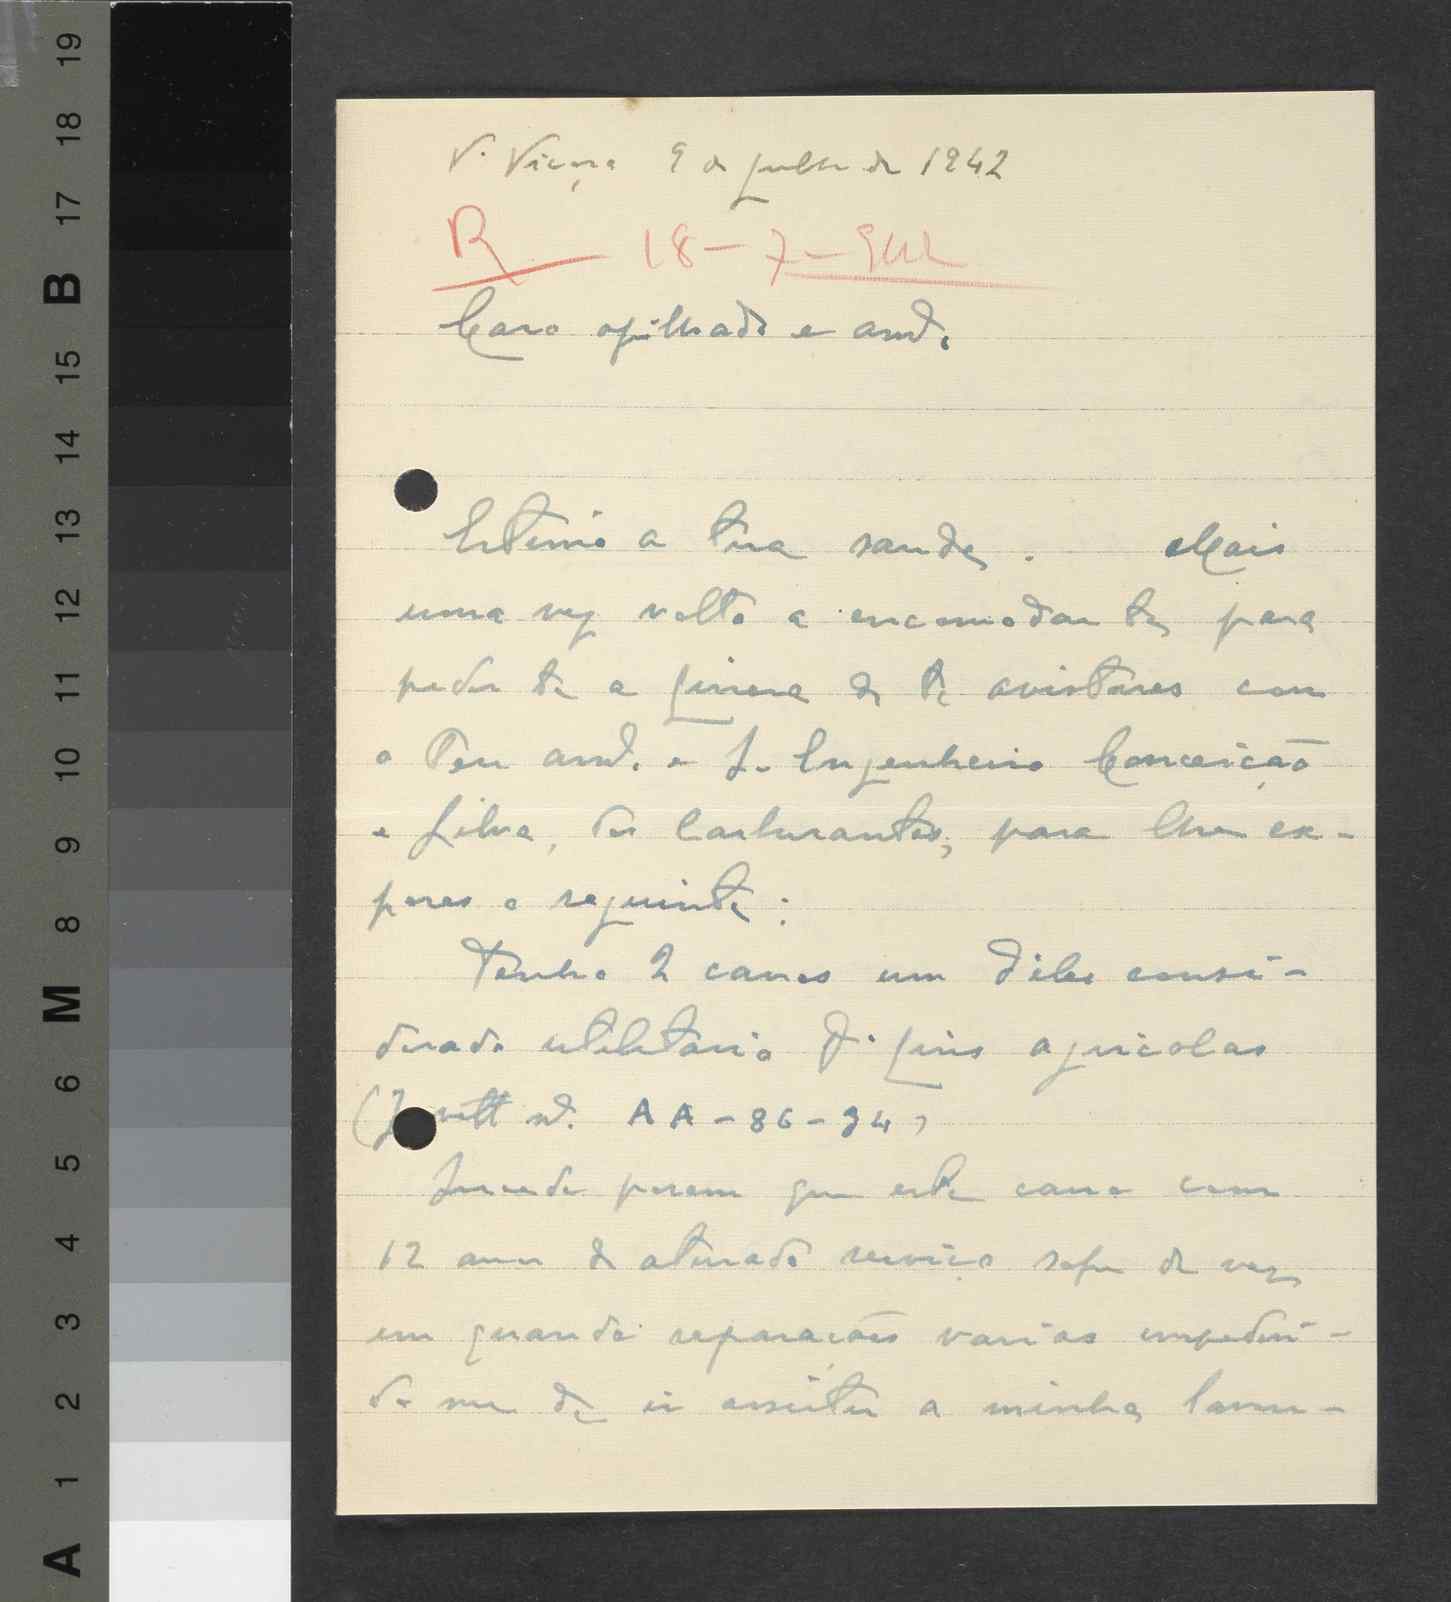 V. Viçosa 9 de julho de 1942
R — 18-7-942
Caro afilhado e amº.
Estimo a tua saude. Mais
uma vez volto a encomodar te para
pedir te a fineza de te avistares com
o Teu amº. e S. Engenheiro Conceição
e Silva, dos Carburantes, para lhe ex-
pores o seguinte:
Tenho 2 carros um deles consi-
derado utilitario p. fins agricolas
nº. AA-86-94)
Sucede porem que este carro com
12 anos de aturado serviço sofre de vez
em quando reparações varias impedin-
do me de ir assistir a minha lavou-
19
18
17
B
16
15
14
13
12
11
10
9
8
M
7
6
5
4
3
2
1
A